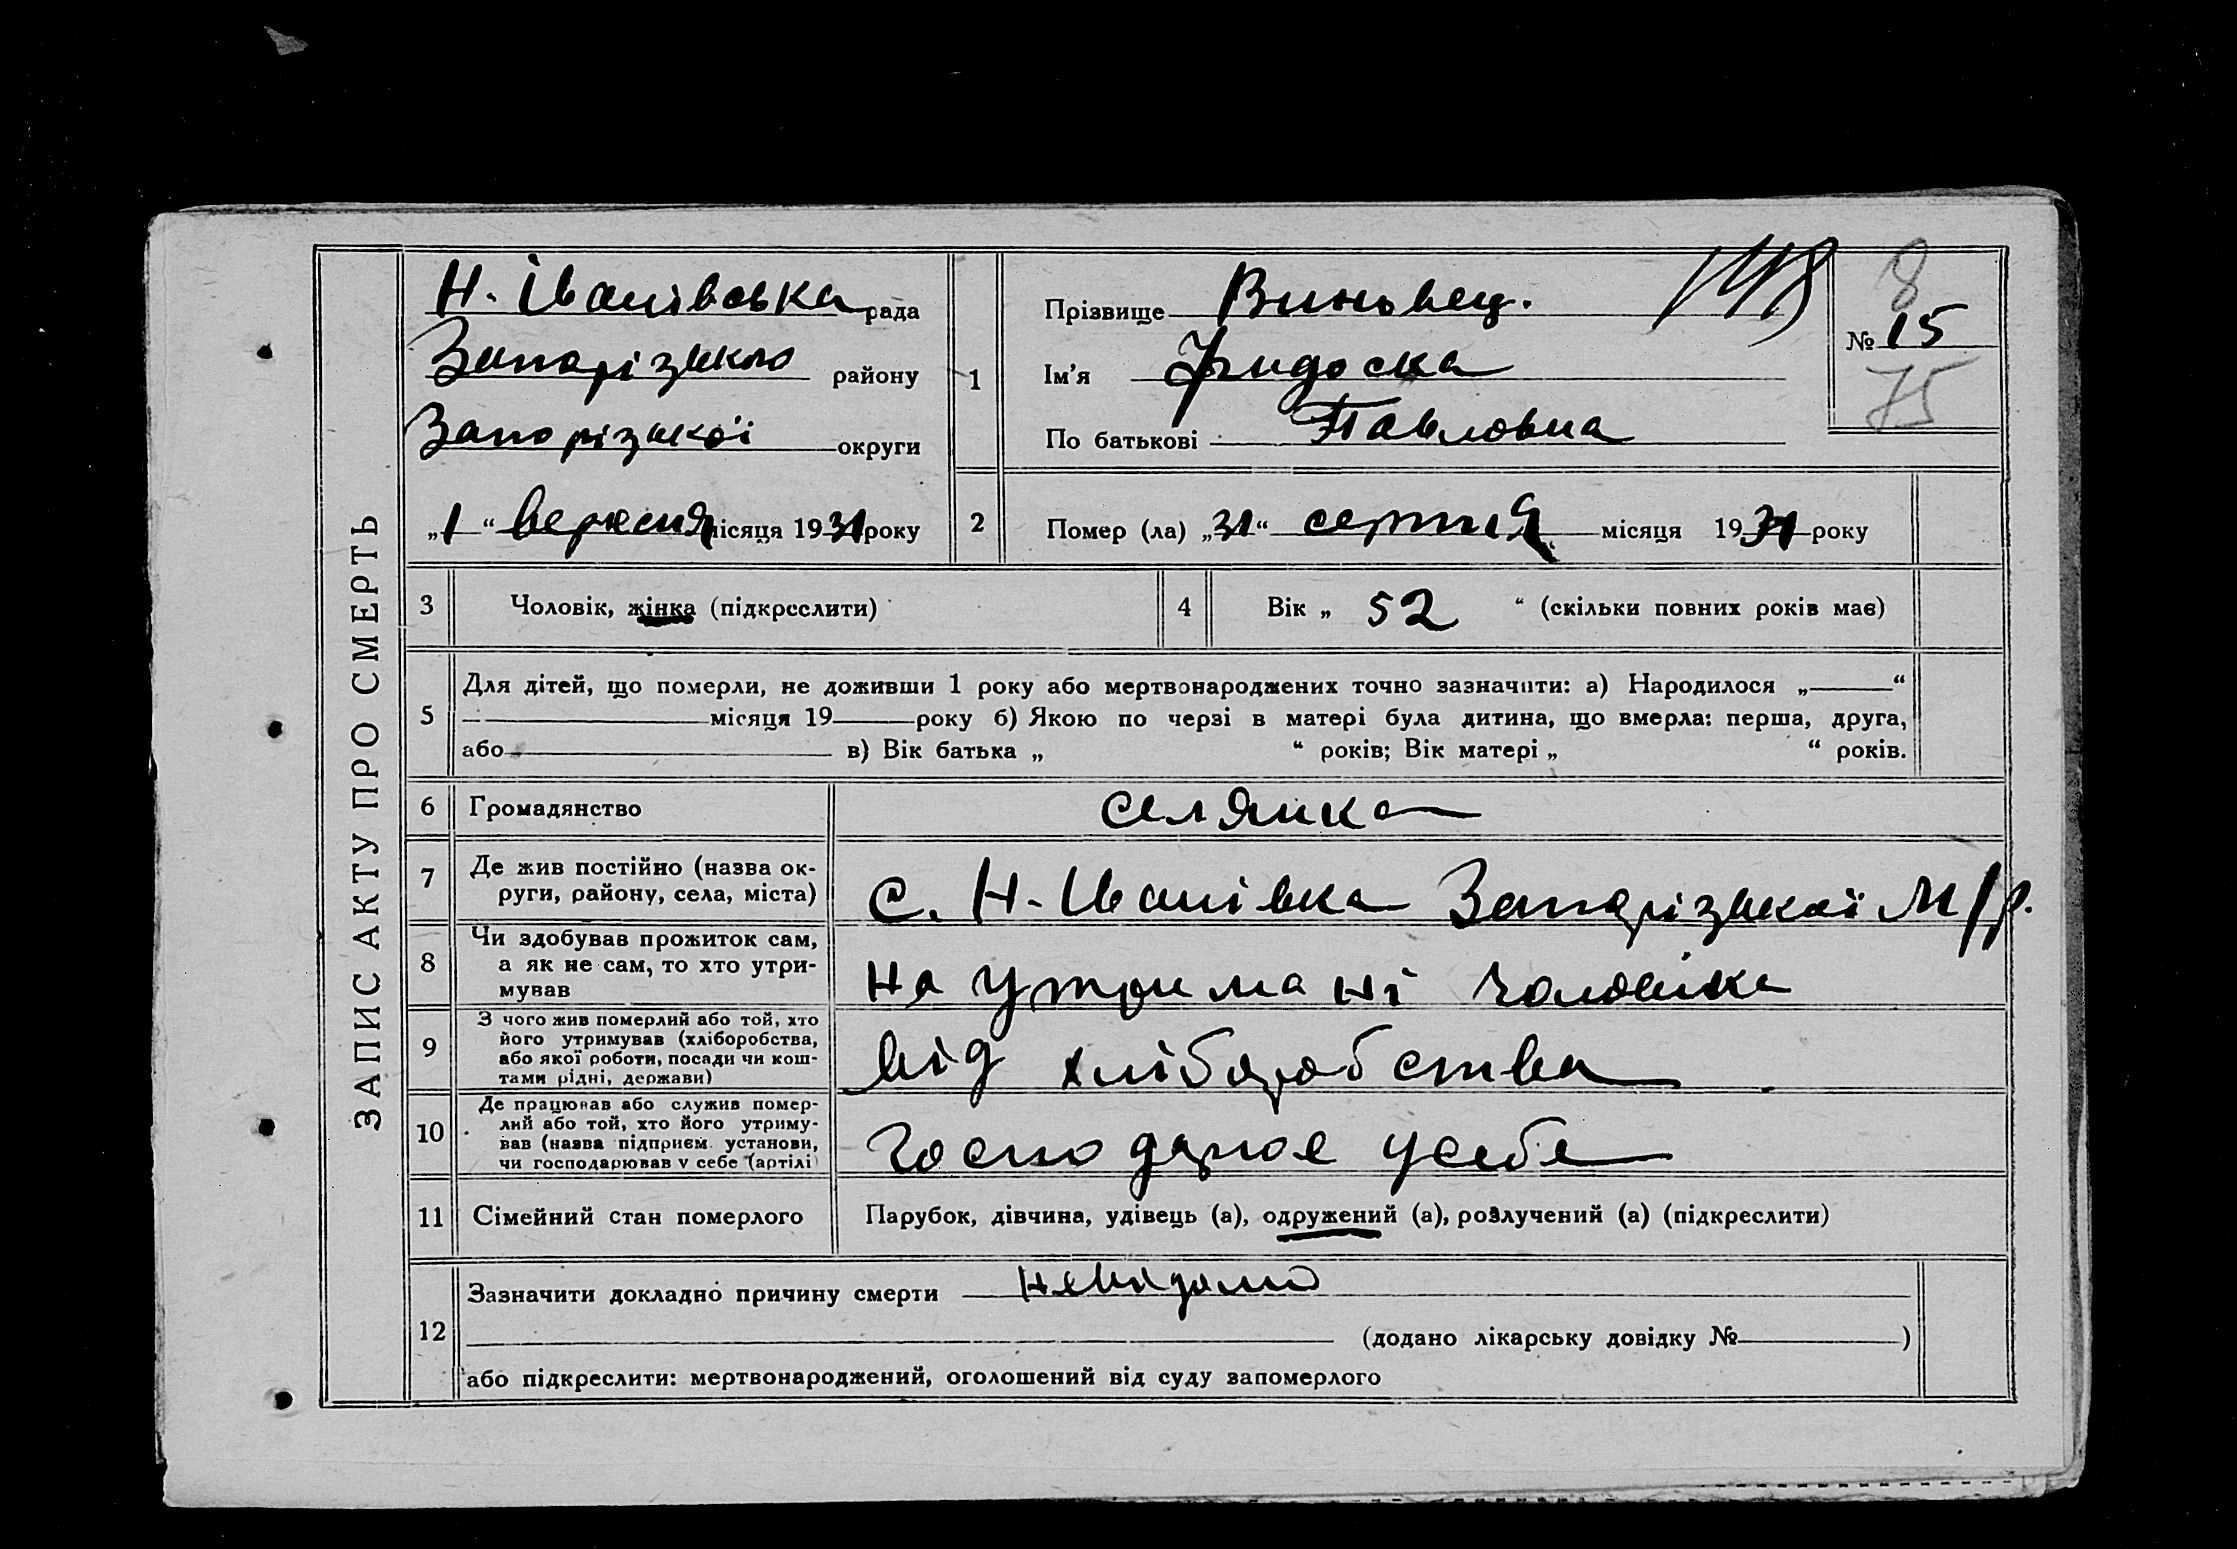 ЗАПИС АКТУ ПРО СМЕРТЬ
Н. Іванівська рада
Запорізького району
Запорізької округи
„1“ вересня місяця 1931 року
1
Прізвище Виновец.
Ім'я
По батькові Павловна
№ 15
8
75
2 Помер (ла) „31“ серпня місяця 1931 року
3 Чоловік, жінка (підкреслити)
4 Вік „ 52 “ (скільки повних років має)
5 Для дітей, що померли, не доживши 1 року або мертвонароджених точно зазначити: а) Народилося „ “
місяця 19 року б) Якою по черзі в матері була дитина, що вмерла: перша, друга,
або в) Вік батька „ “ років; Вік матері „ “ років.
6 Громадянство селянка
7 Де жив постійно (назва ок-
руги, району, села, міста)
с. Н-Іванівка Запорізької М/р.
8 Чи здобував прожиток сам,
а як не сам, то хто утри-
мував
на утримані чоловіка
9 З чого жив померлий або той, хто
його утримував (хліборобства,
або якої роботи, посади чи кош-
тами рідні, держави)
від хліборобства
10 Де працював або служив помер-
лий або той, хто його утриму-
вав (назва підприєм. установи,
чи господарював у себе (артілі)
господарює усебе
11 Сімейний стан померлого Парубок, дівчина, удівець (а), одружений (а), розлучений (а) (підкреслити)
12 Зазначити докладно причину смерти невідомо
(додано лікарську довідку № )
або підкреслити: мертвонароджений, оголошений від суду запомерлого